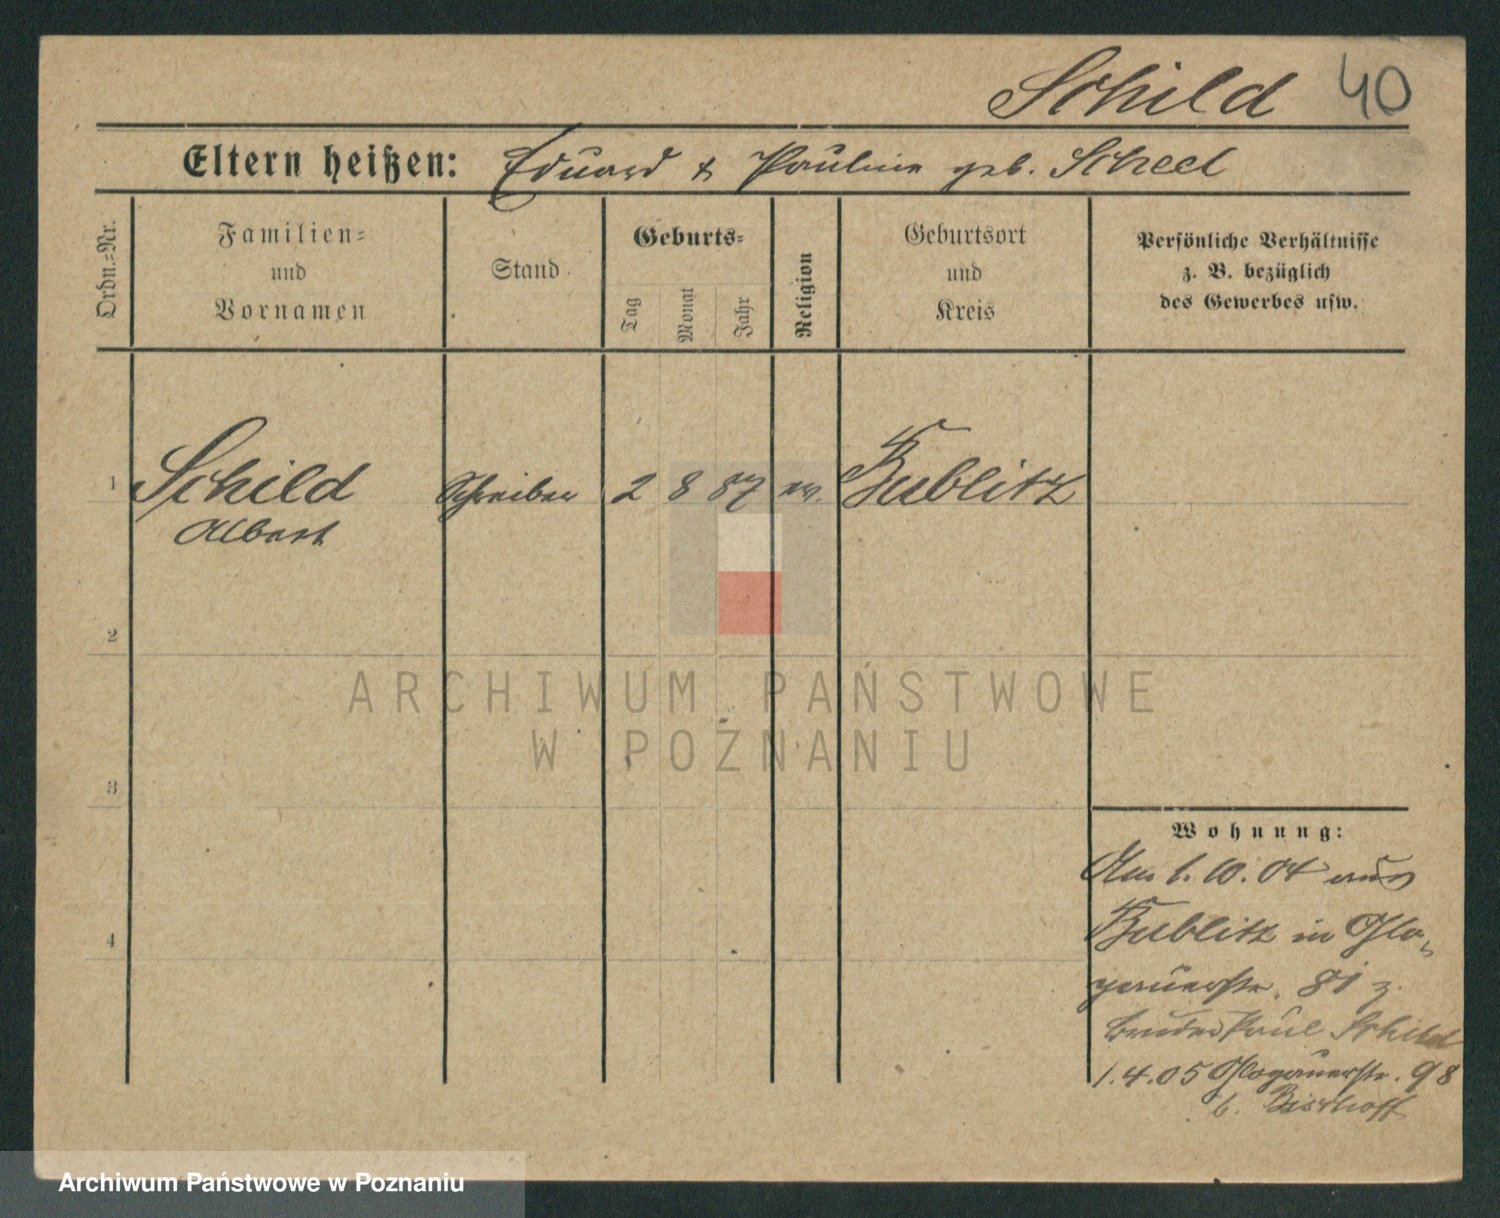 Schild 40
Eltern heißen: Eduard & Pauline geb. Scheel
Ordn.=Nr.
Familien=
und
Vornamen
Stand
Geburts=
Tag
Monat
Jahr
Religion
Geburtsort
und
Kreis
Persönliche Verhältnisse
z. B. bezüglich
des Gewerbes usw.
1 Schild Schreiber 2 8 87 ev. Bublitz
Albert
2
ARCHIWUM PAŃSTWOWE
W POZNANIU
3
Wohnung:
1. 10. 04 aus
4 Bublitz in Glo-
gauerstr. 81 z.
Bruder Paul Schild
1.4.05 Glogauerstr. 98
b. Bischoff
Archiwum Państwowe w Poznaniu